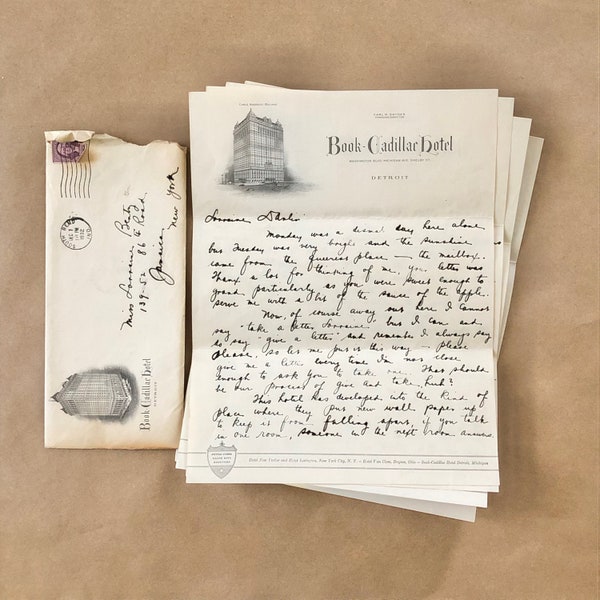 CARL E. SNYDER
Book-Cadillac Hotel
WASHINGTON BLVD. MICHIGAN AVE. SHELBY ST.
DETROIT
Lorraine Darlin'
Monday was a dismal day here alone
but Tuesday was very bright and the sunshine
came from the queerest place — the mailbox.
Thanx a lot for thinking of me, your letter was
grand, particularly as you were sweet enough to
serve me with a bit of the sauce of the apple.
Now, of course away out here I cannot
say "take a letter, Lorraine", but I can and
do say "give a letter" and remember I always say
please, so let me put it this way — please
give me a letter every time I'm not close
enough to ask you to take one. That should
be our process of give and take, huh?
This hotel has developed into the kind of
place where they put new wall paper up
to keep it from falling apart, if you talk
in one room, someone in the next room answers.
Hotel New Yorker and Hotel Lexington, New York City, N. Y. — Hotel Van Cleve, Dayton, Ohio — Book-Cadillac Hotel Detroit, Michigan
Miss Lorraine Beaty
139-52 86th Road
Jamaica
New York
Book-Cadillac Hotel
DETROIT